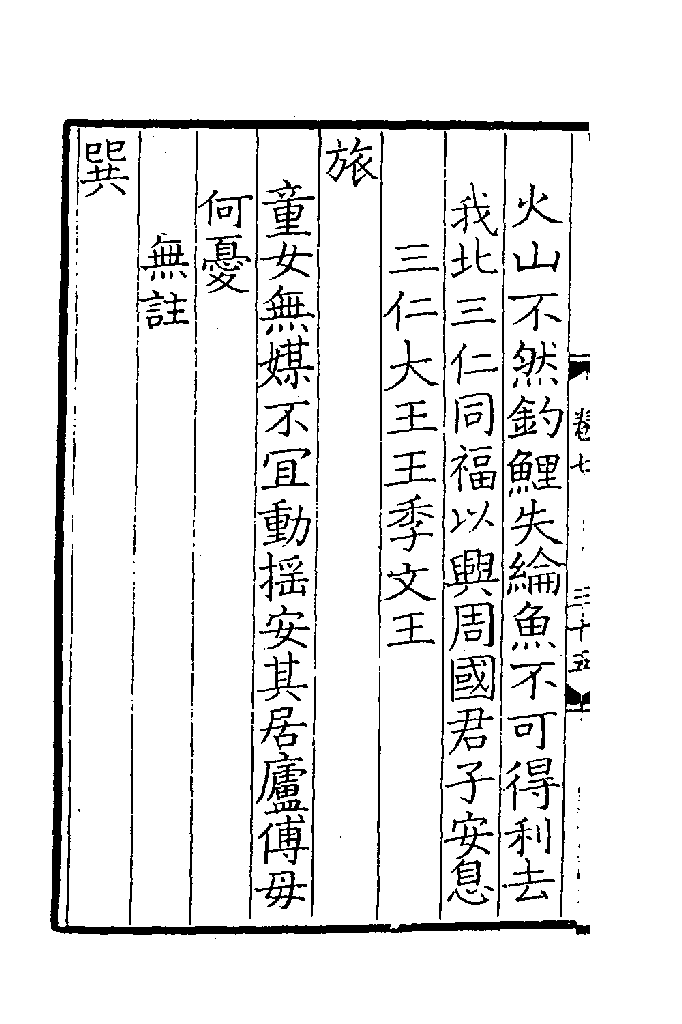 卷七
三十五
火山不然釣鯉失綸魚不可得利去
我北三仁同福以興周國君子安息
三仁大王王季文王
旅
童女無媒不宜動揺安其居廬傅毋
何憂
無註
巽